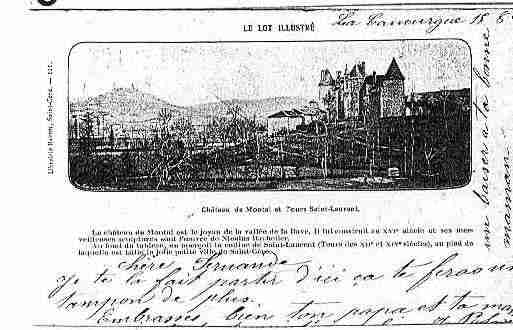 La Canourgue 18 8
LE LOT ILLUSTRÉ
Librairie Saint-Céré. — 121.
Château de Montal et Tours Saint-Laurent.
Le château de Montal est le joyau de la vallée de la Bave. Il fut construit au XVIe siècle et ses mer-
veilleuses sculptures sont l'œuvre de Nicolas Bachelier.
Au fond du tableau, on aperçoit la colline de Saint-Laurent (Tours des XIIe et XIVe siècles), au pied de
laquelle est bâtie la jolie petite ville de Saint-Céré.
un baiser a ta bonne
maman
Chère Fernande
Je te la fait partir d'ici ca te feras un
tampon de plus.
Embrasses bien ton papa et ta ma